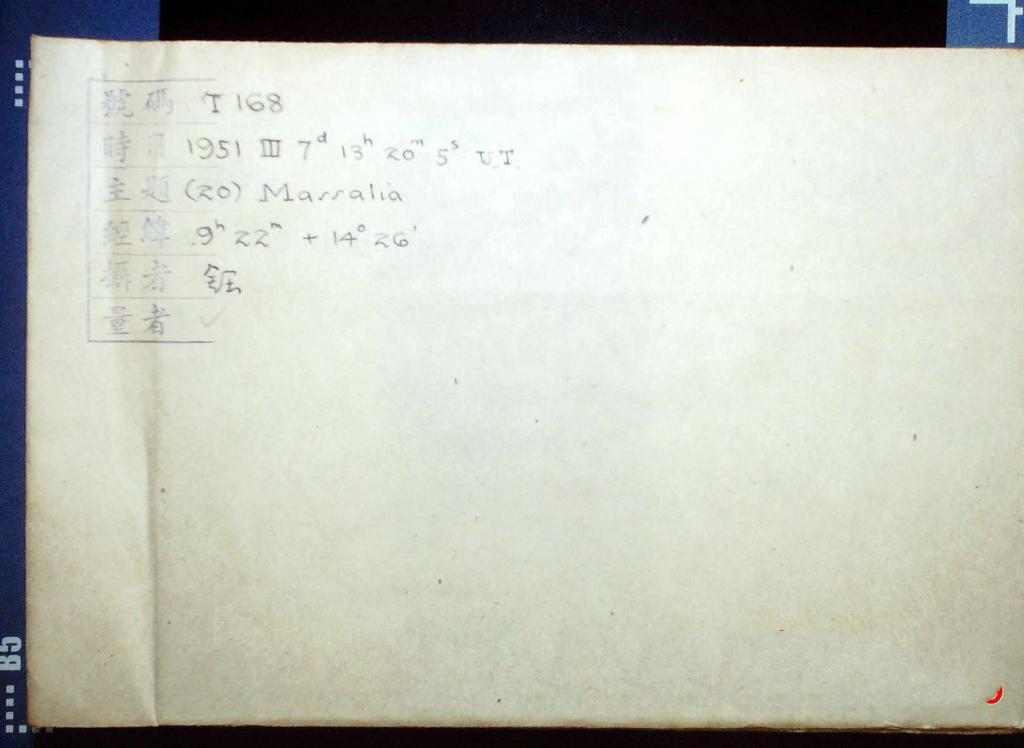 號碼 T 168
時日 1951 III 7ᵈ 13ʰ 20ᵐ 5ˢ U.T.
主題 (20) Massalia
經緯 9ʰ 22ᵐ + 14° 26'
攝者 鈺
量者 ✓
B5